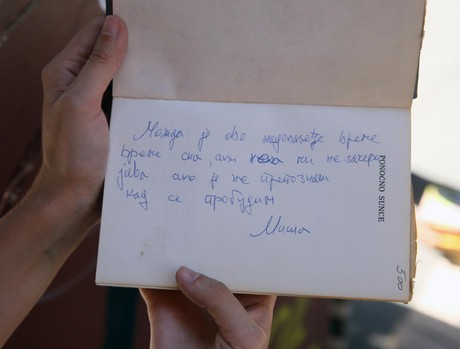 Можда је ово надолазеће време
време сна, али нека ми не замера
јава ако је не препознам
кад се пробудим
Миша
PONOĆNO SUNCE
500